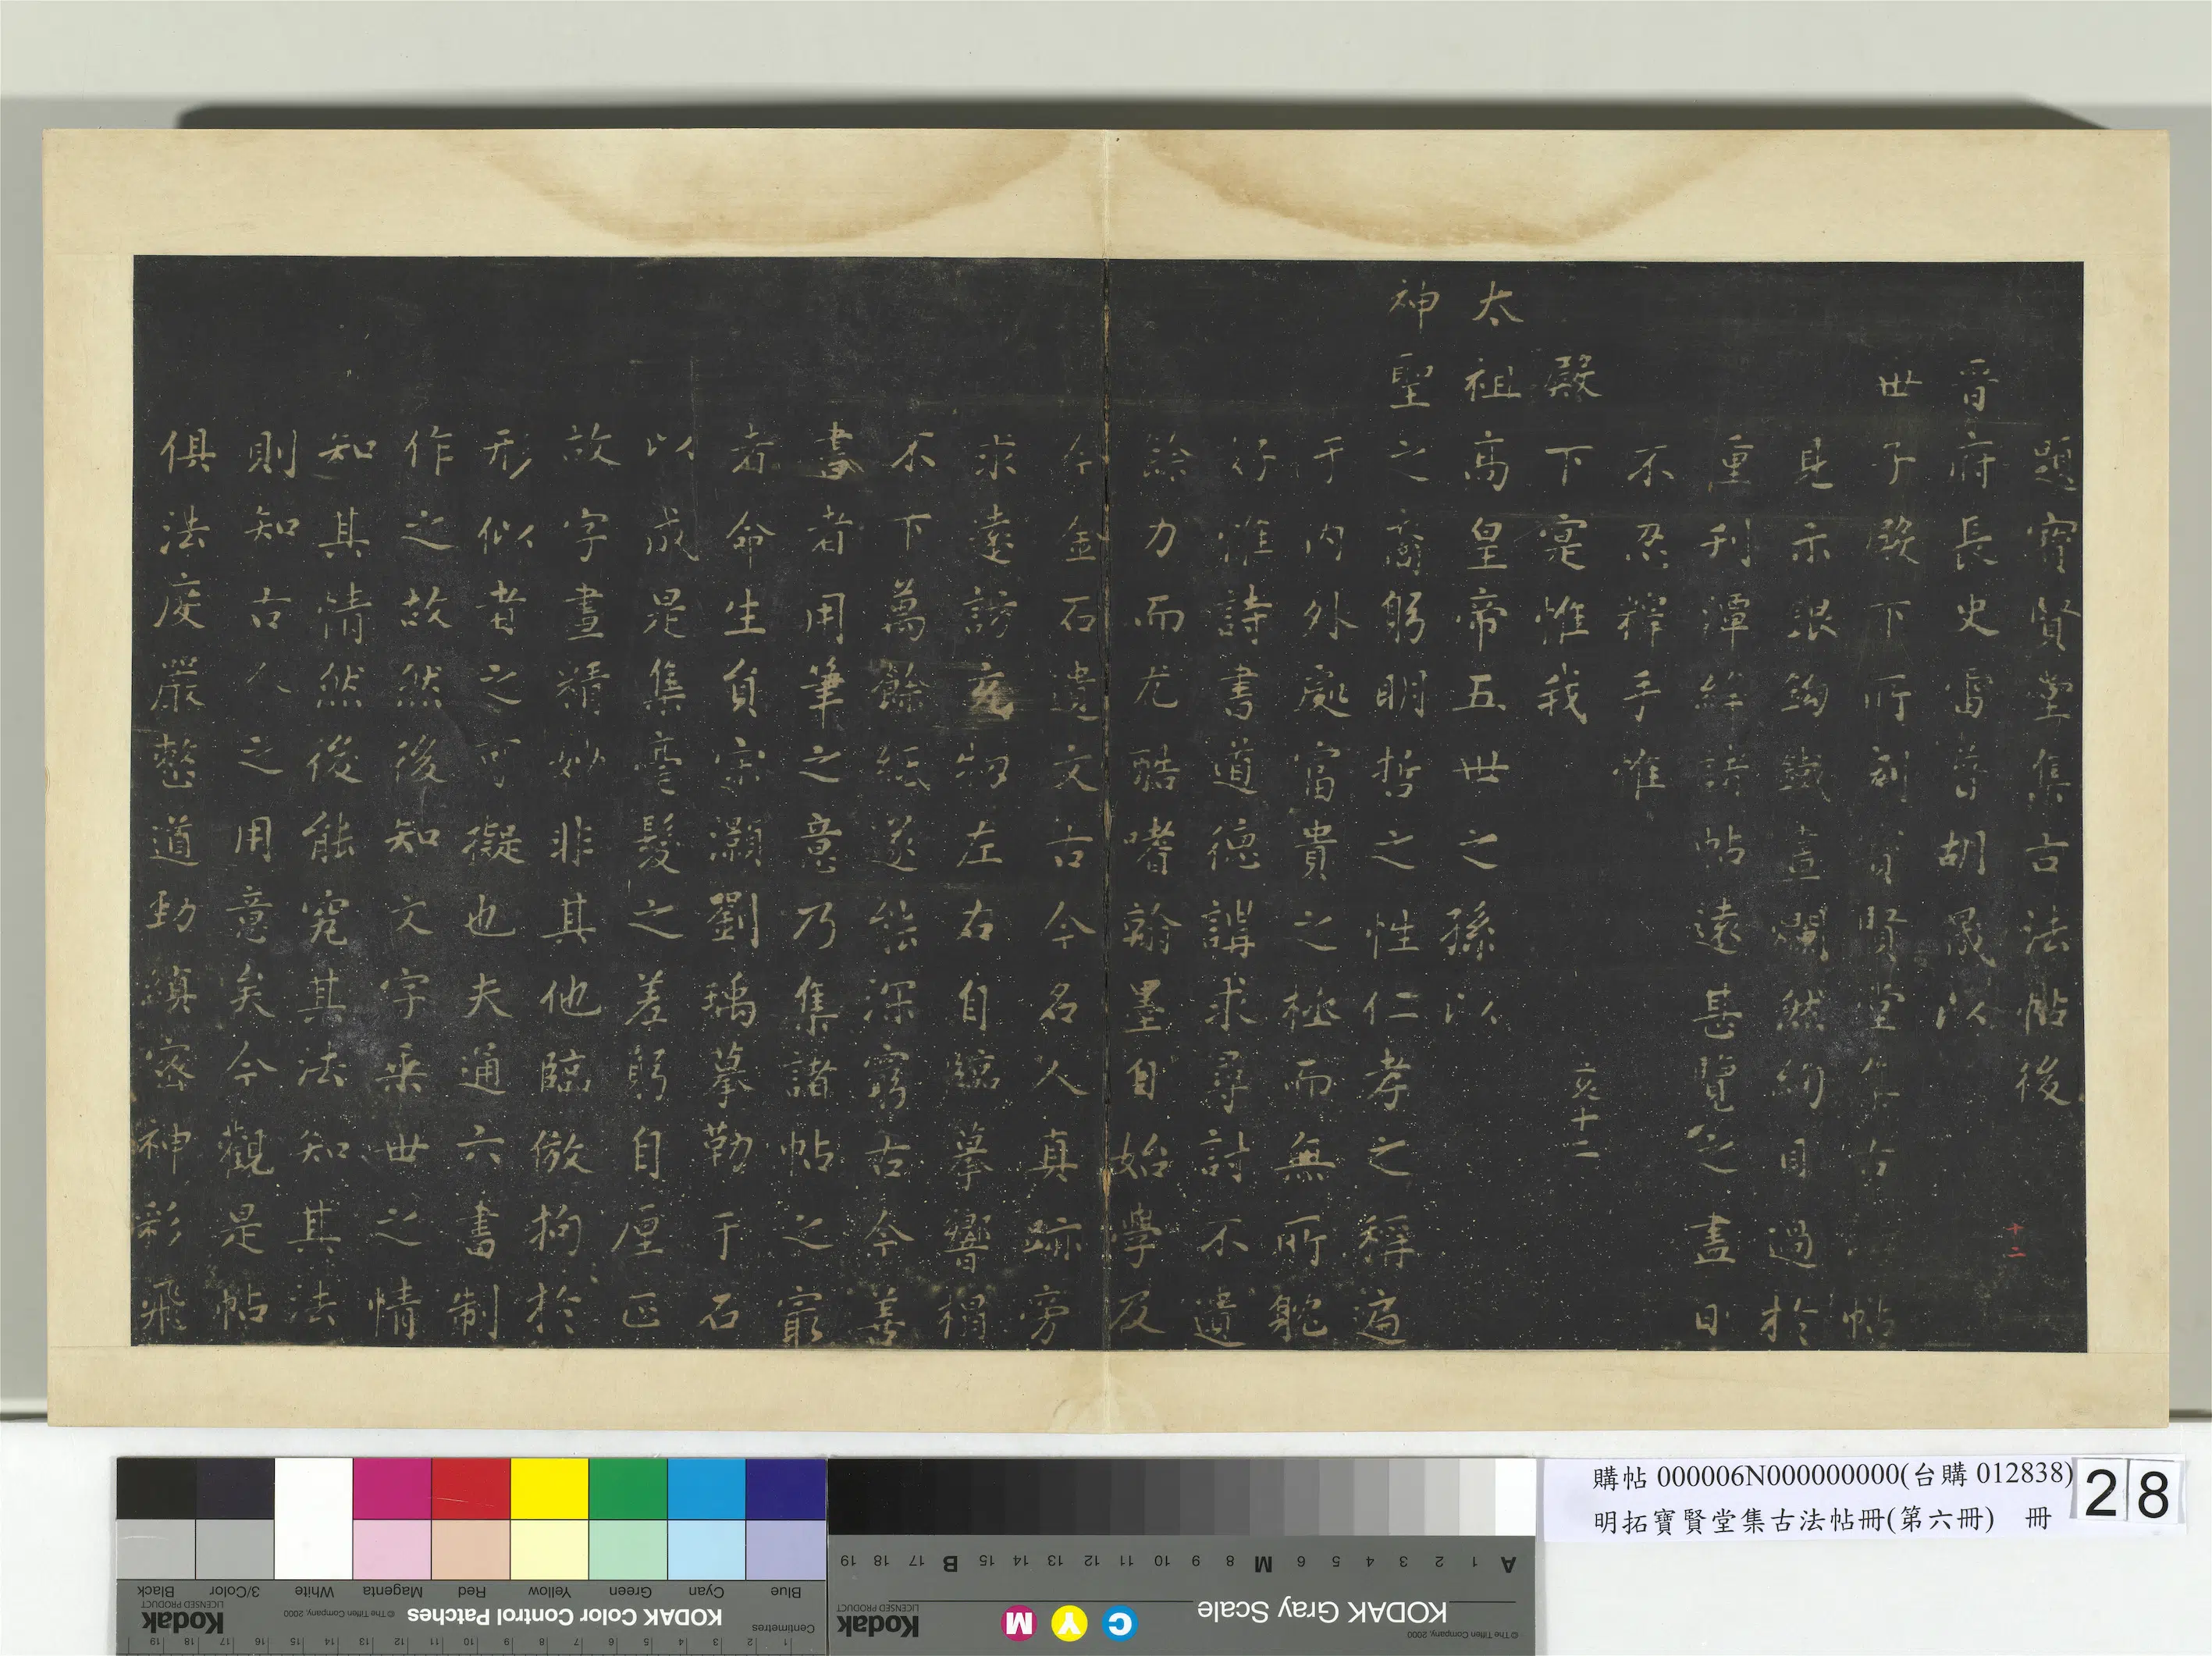 題寶賢堂集古法帖後
晉府長史雷 胡晟以
世子殿下所刻寶賢堂集古帖
見示銀鉤鐵畫爛然絢目過於
重刊潭絳諸帖遠甚覽之盡日
不忍釋手惟
殿下寔惟我
亥十二
太祖高皇帝五世之孫以
神聖之裔躬明哲之性仁孝之稱遍
于內外處富貴之極而無所躭
好惟詩書道德講求尋討不遺
餘力而尤酷嗜翰墨自始學及
今金石遺文古今名人真跡旁
求遠訪充牣左右自臨摹響搨
不下萬餘紙遂能深窮古今善
書者用筆之意乃集諸帖之最
者命生員宋灝劉瑀摹勒于石
以成是集毫髮之差躬自厘正
故字畫精妙非其他臨倣拘於
形似者之可擬也夫通六書制
作之故然後知文字乘世之情
知其情然後能究其法知其法
則知古人之用意矣今觀是帖
俱法度嚴整遒勁縝密神彩飛
十二
購帖 000006N000000000(台購 012838)
明拓寶賢堂集古法帖冊(第六冊) 冊
28
KODAK Color Control Patches
© The Tiffen Company, 2000
Kodak
LICENSED PRODUCT
Blue Cyan Green Yellow Red Magenta White 3/Color Black
Centimetres
KODAK Gray Scale
C Y M
Kodak
LICENSED PRODUCT
© The Tiffen Company, 2000
A 1 2 3 4 5 6 M 8 9 10 11 12 13 14 15 B 17 18 19